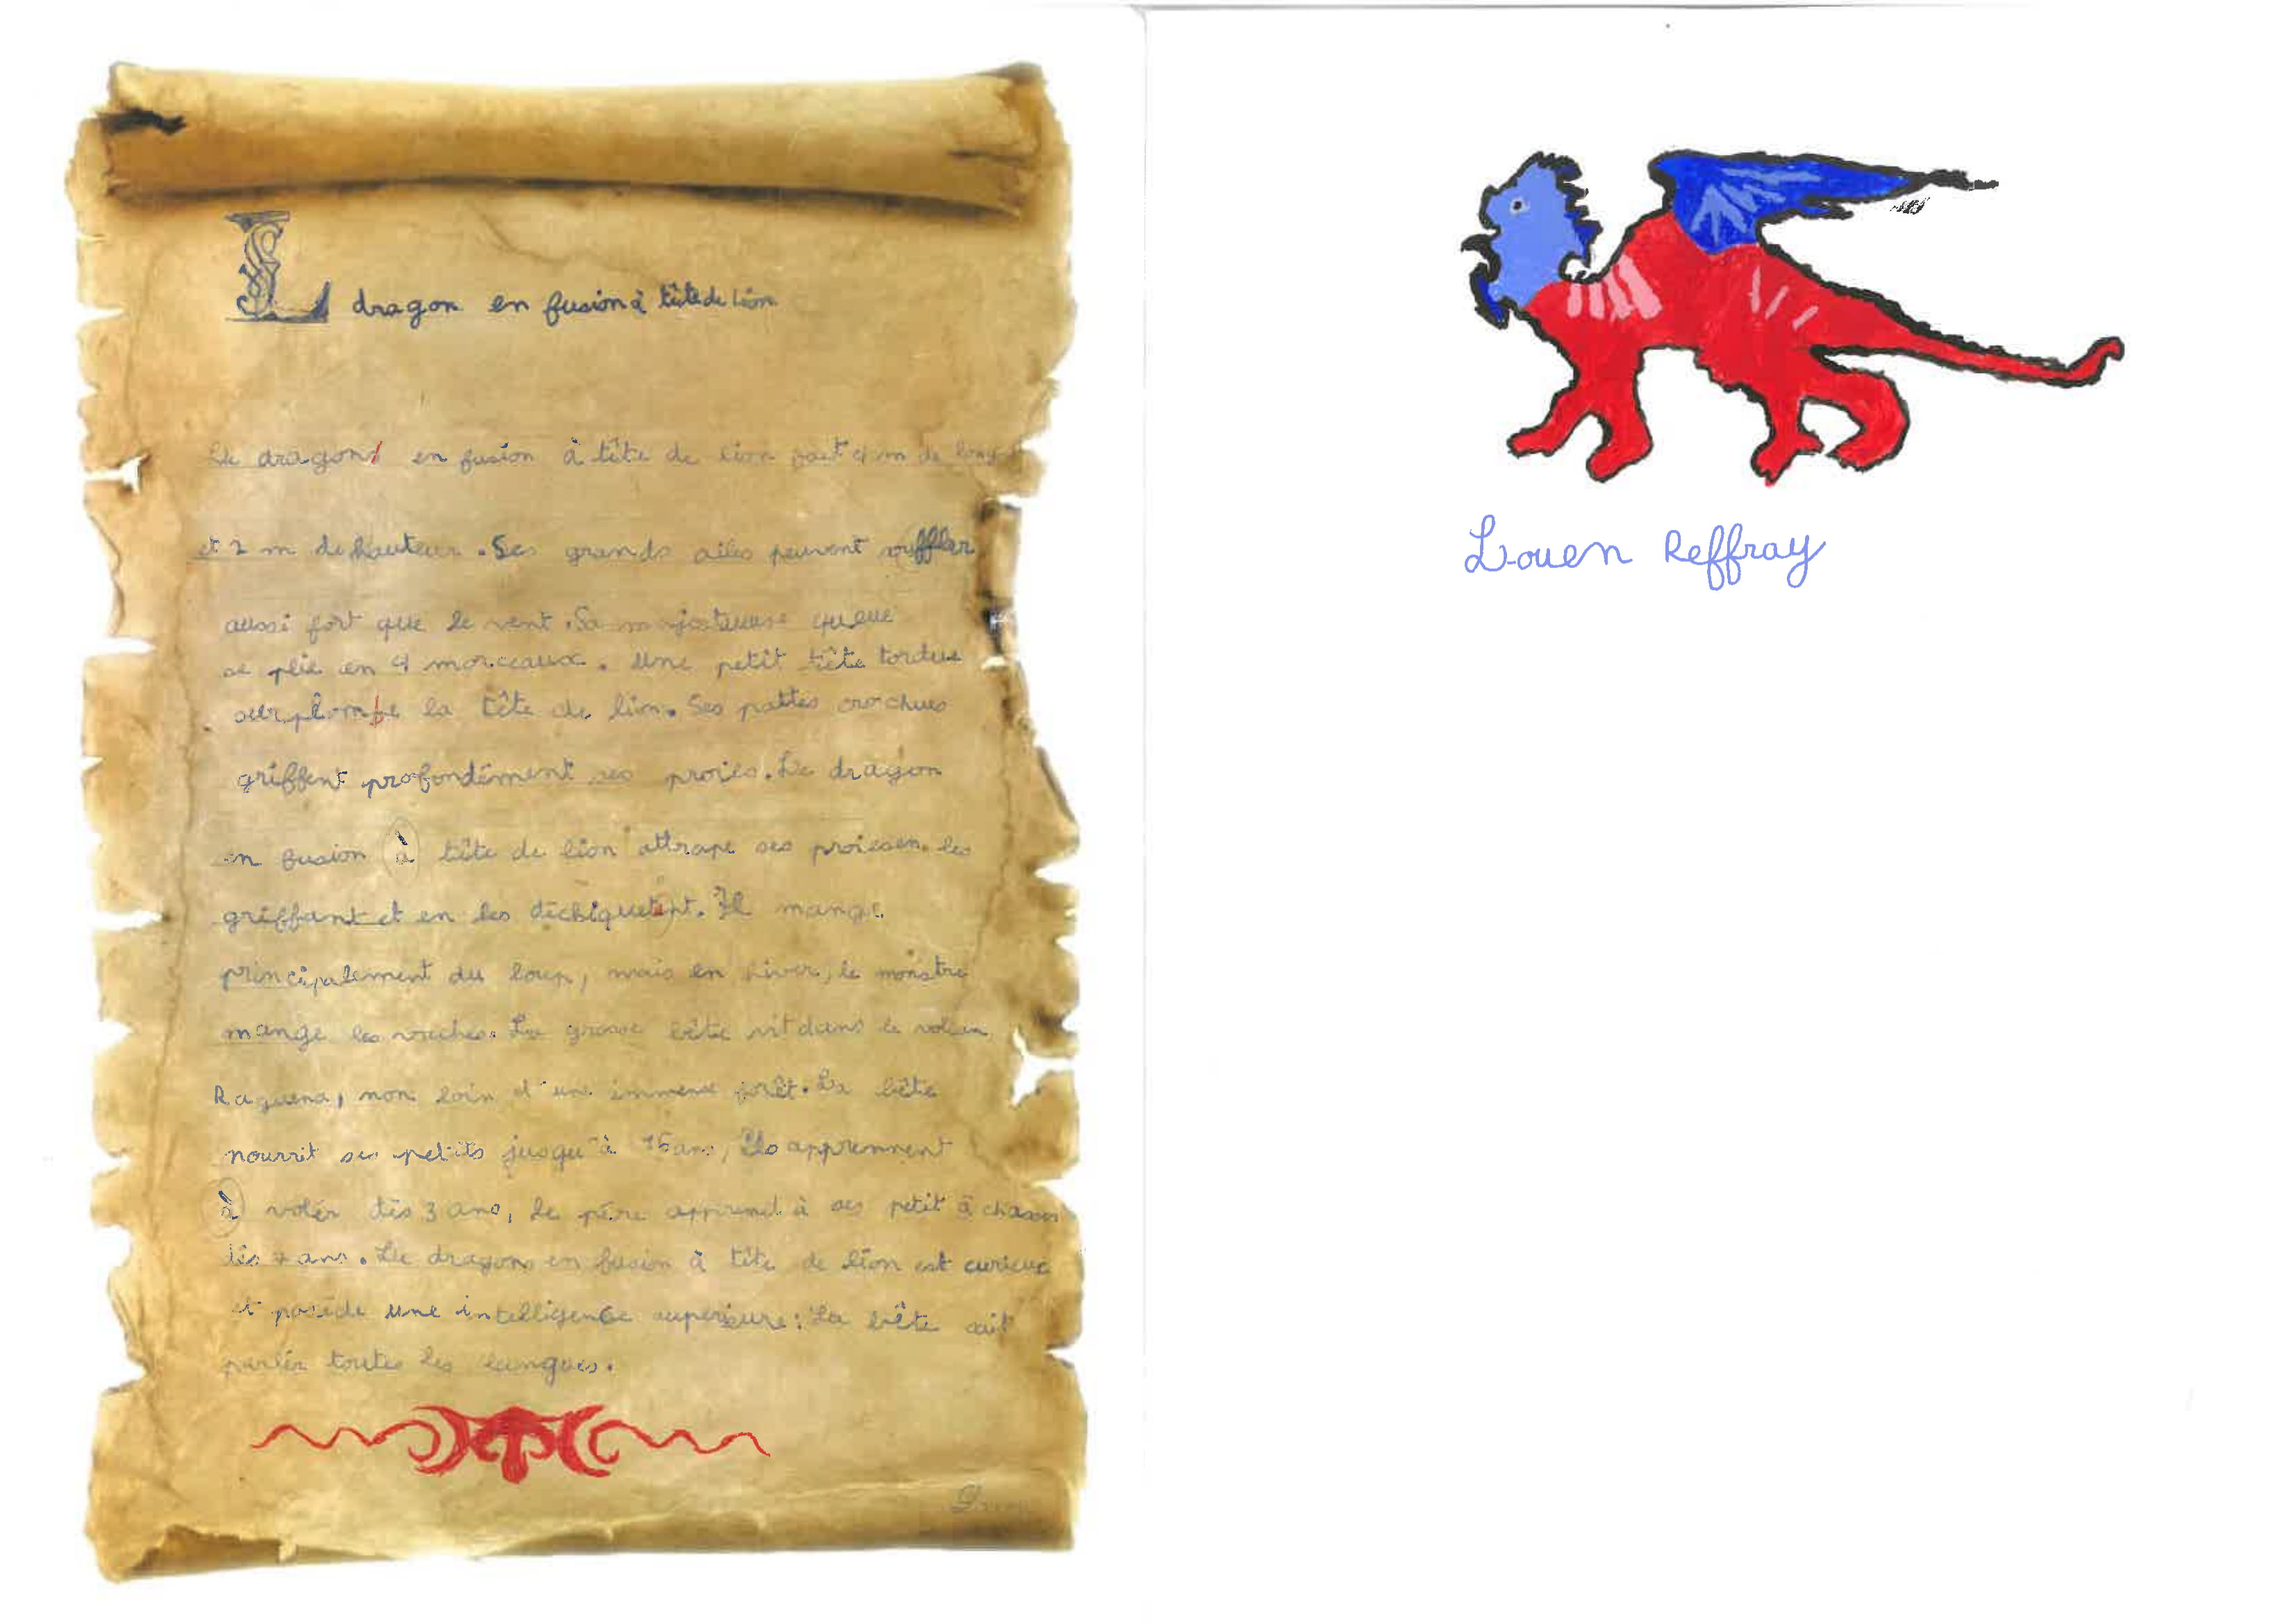 L dragon en fusion à tête de lion
Le dragon en fusion à tête de lion fait 4 m de long
et 2 m de hauteur. Ses grands ailes peuvent souffler
aussi fort que le vent. Sa majesteuse queue
se plie en 4 morceaux. Une petit tête tordue
surplombe la tête de lion. Ses pattes crochues
griffent profondément ses proies. Le dragon
en fusion à tête de lion attrape ses proies en les
griffant et en les déchiquetant. Il mange
principalement du loup, mais en hiver, le monstre
mange les vaches. La grosse bête vit dans le volcan
Raguena, non loin d'une immense forêt. La bête
nourrit ses petits jusqu'à 15 ans, Ils apprennent
à voler dès 3 ans, le père apprend à ses petit à chasser
dès 7 ans. Le dragon en fusion à tête de lion est curieux
et posède une intelligence superieure: La bête sait
parler toutes les langues.
Louen Reffray